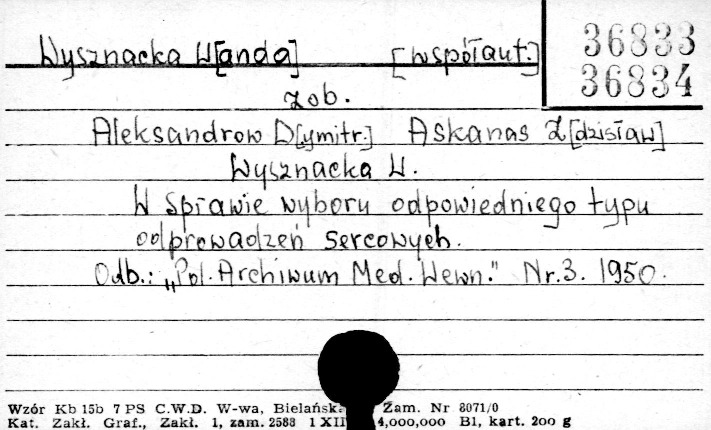 Wysznacka W[anda] [współaut.]
36833
36834
zob.
Aleksandrow D[ymitr.] Askanas Z[dzisław]
Wysznacka W.
W sprawie wyboru odpowiedniego typu
odprowadzeń sercowych.
Odb.: „Pol. Archiwum Med. Wewn." Nr. 3. 1950.
Wzór Kb 15b 7 PS C.W.D. W-wa, Bielańska Zam. Nr 8071/0
Kat. Zakł. Graf., Zakł. 1, zam. 2588 1 XII 4,000,000 B1, kart. 200 g